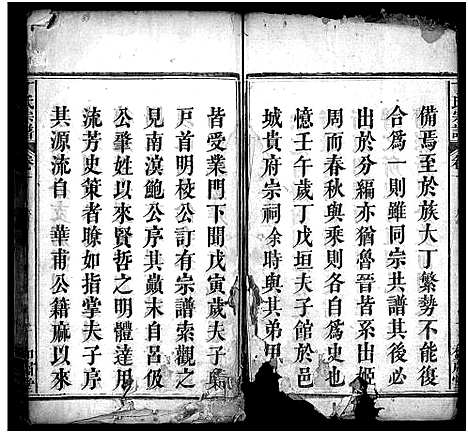 備焉至於族大丁繁勢不能復
合爲一則雖同宗共譜其後必
出於分編亦猶魯晉皆系出姬
周而春秋與乘則各自爲史也
憶壬午歲丁戊垣夫子館於邑
城貴府宗祠余時與其弟甲
皆受業門下聞戊寅歲夫子與
戶首明枝公訂有宗譜索觀之
見南溟鮑公序其蘋末自呂伋
公肇姓以來賢哲之明體達用
流芳史策者瞭如指掌夫子序
其源流自 華甫公籍麻以來
氏宗譜